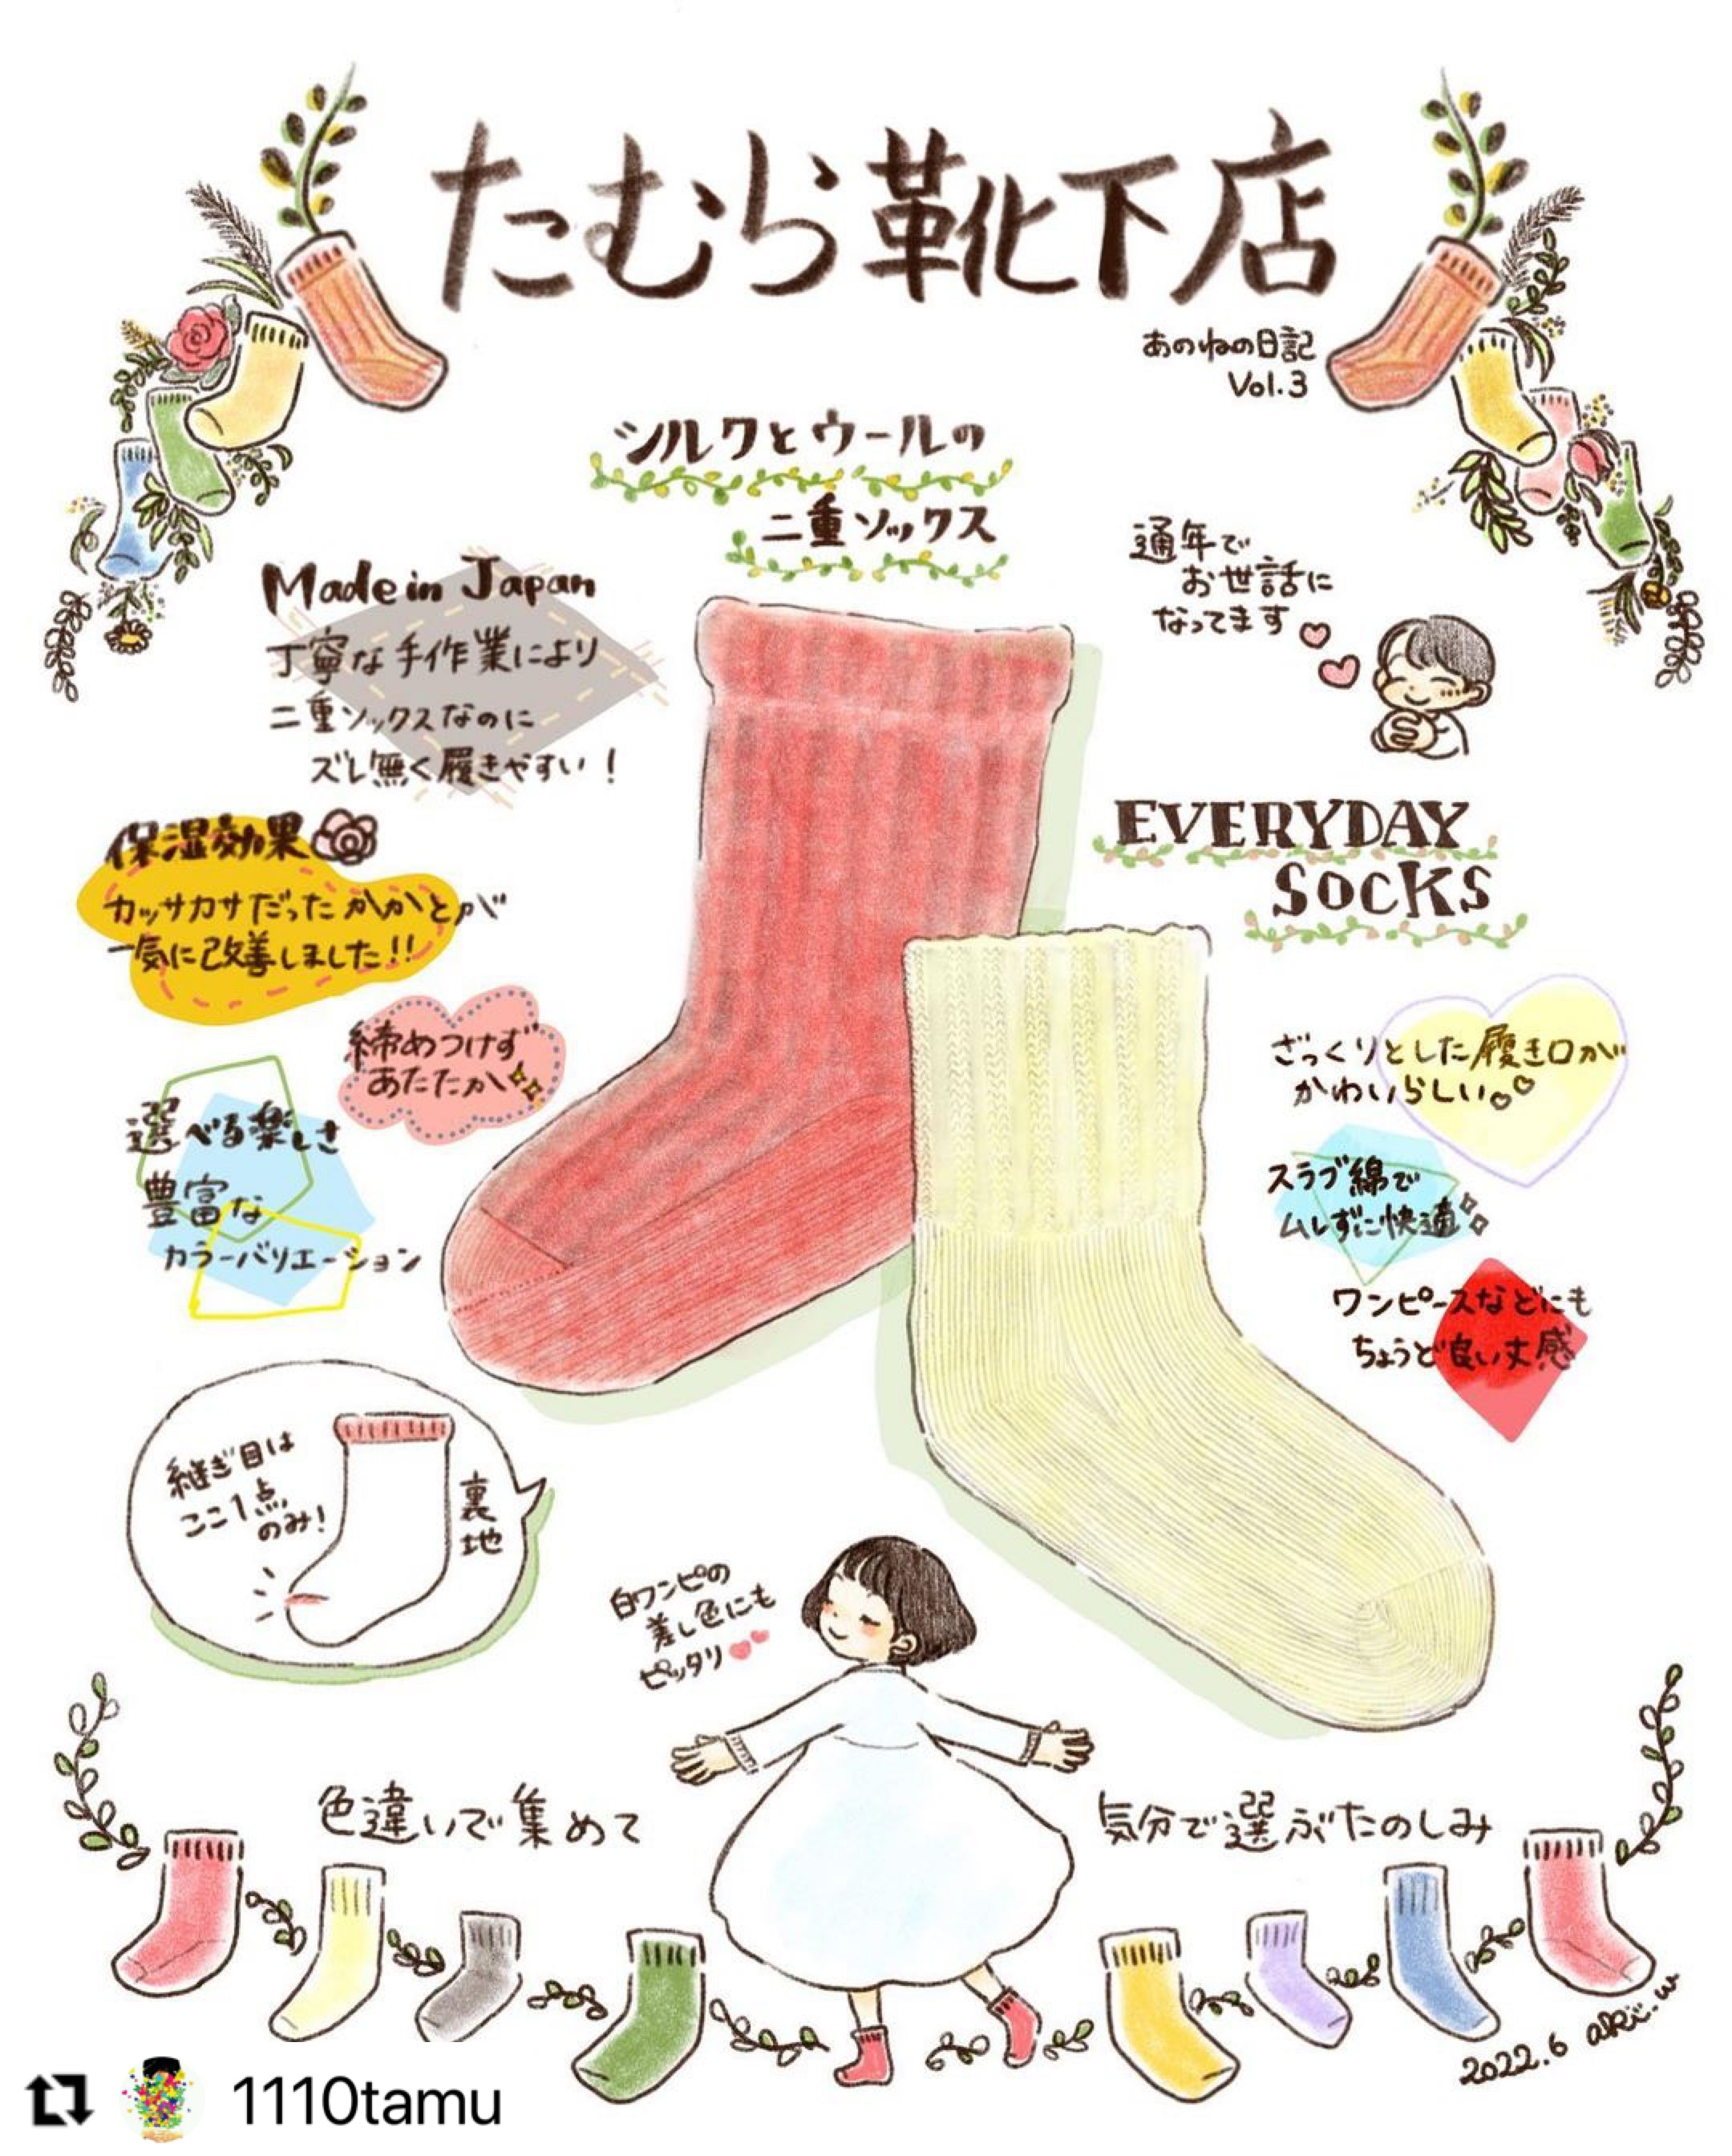 たむら靴下店
あのねの日記
Vol.3
シルクとウールの
二重ソックス
通年で
お世話に
なってます
Made in Japan
丁寧な手作業により
二重ソックスなのに
ズレ無く履きやすい！
保湿効果
カッサカサだったかかとが
一気に改善しました!!
締めつけず
あたたかい
選べる楽しさ
豊富な
カラーバリエーション
EVERYDAY
SOCKS
ざっくりとした履き口が
かわいらしい。
スラブ綿で
ムレずに快適
ワンピースなどにも
ちょうど良い丈感
継ぎ目は
ここ1点
のみ!
裏地
白ワンピの
差し色にも
ピッタリ
色違いで集めて
気分で選ぶたのしみ
2022.6 aki.w
1110tamu